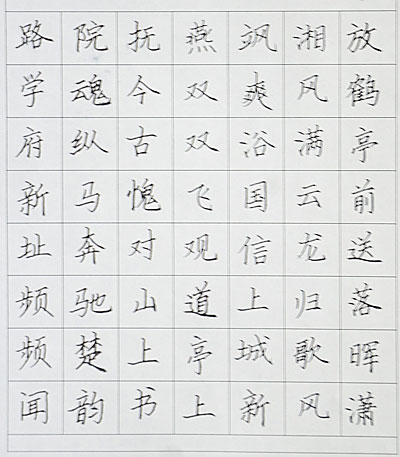 放鹤亭前送落晖潇
湘风满云龙归歌风
飒爽浴国信上城新
燕双双飞观道亭上
抚今古愧对山上书
院魂纵马奔驰楚韵
路学府新址频频闻